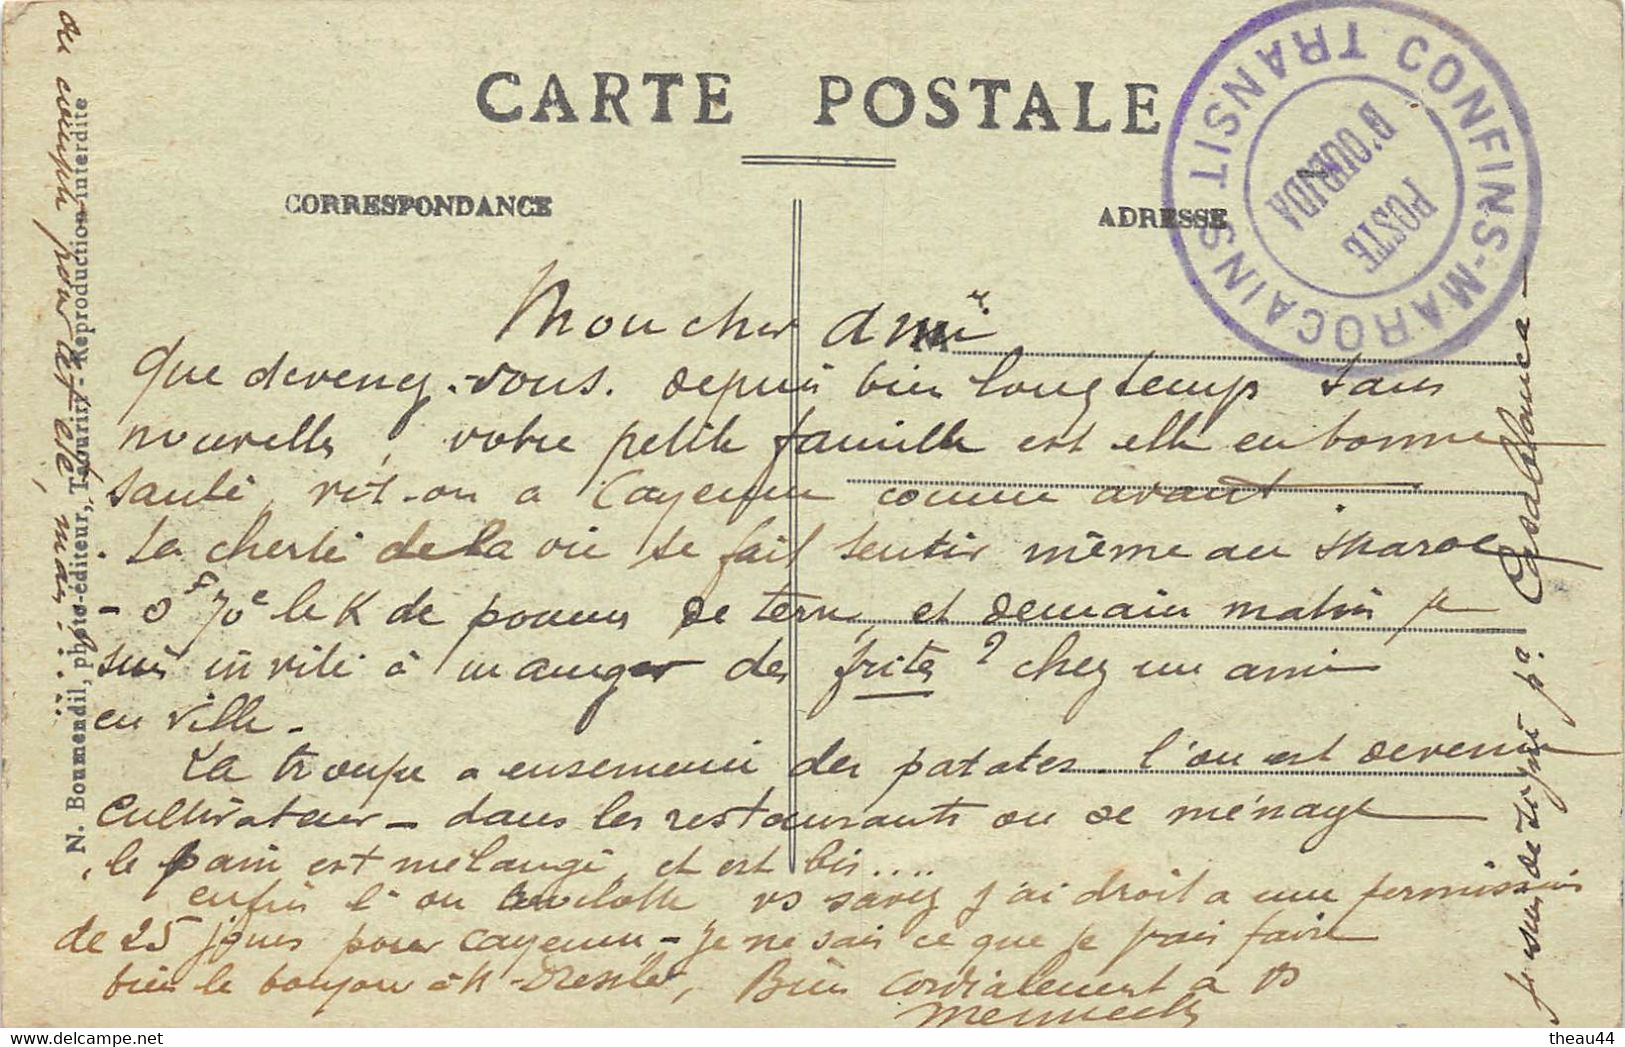 CARTE POSTALE
CORRESPONDANCE
ADRESSE
CONFINS-MAROCAINS TRANSIT
POSTE
D'OUDJDA
Mon cher ami
Que devenez-vous. depuis bien longtemps sans
nouvelles, votre petite famille est elle en bonne
santé, vit-on a Cayenne comme avant
. La cherté de la vie se fait sentir même au Maroc
- 0f 70c le K de pommes de terre, et demain matin je
suis invité à manger des frites ? chez un ami
en ville -
La troupe a ensemencé des patates. l'on est devenu
cultivateur - dans les restaurants ou de ménage
, le pain est mélangé, et est bis....
enfin l'on vs savez j'ai droit a une permission
de 25 jours pour Cayenne - je ne sais ce que je vais faire
bien le bonjour à Mr Bien cordialement a vs
je suis pr Casablanca -
ou pour cet été, mais . . . .
N. Boumendil, photo-éditeur, Taourirt - Reproduction interdite
theau44